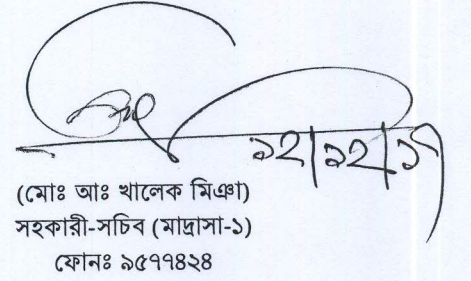 ১২|১২|১৭
(মোঃ আঃ খালেক মিঞা)
সহকারী-সচিব (মাদ্রাসা-১)
ফোনঃ ৯৫৭৭৪২৪